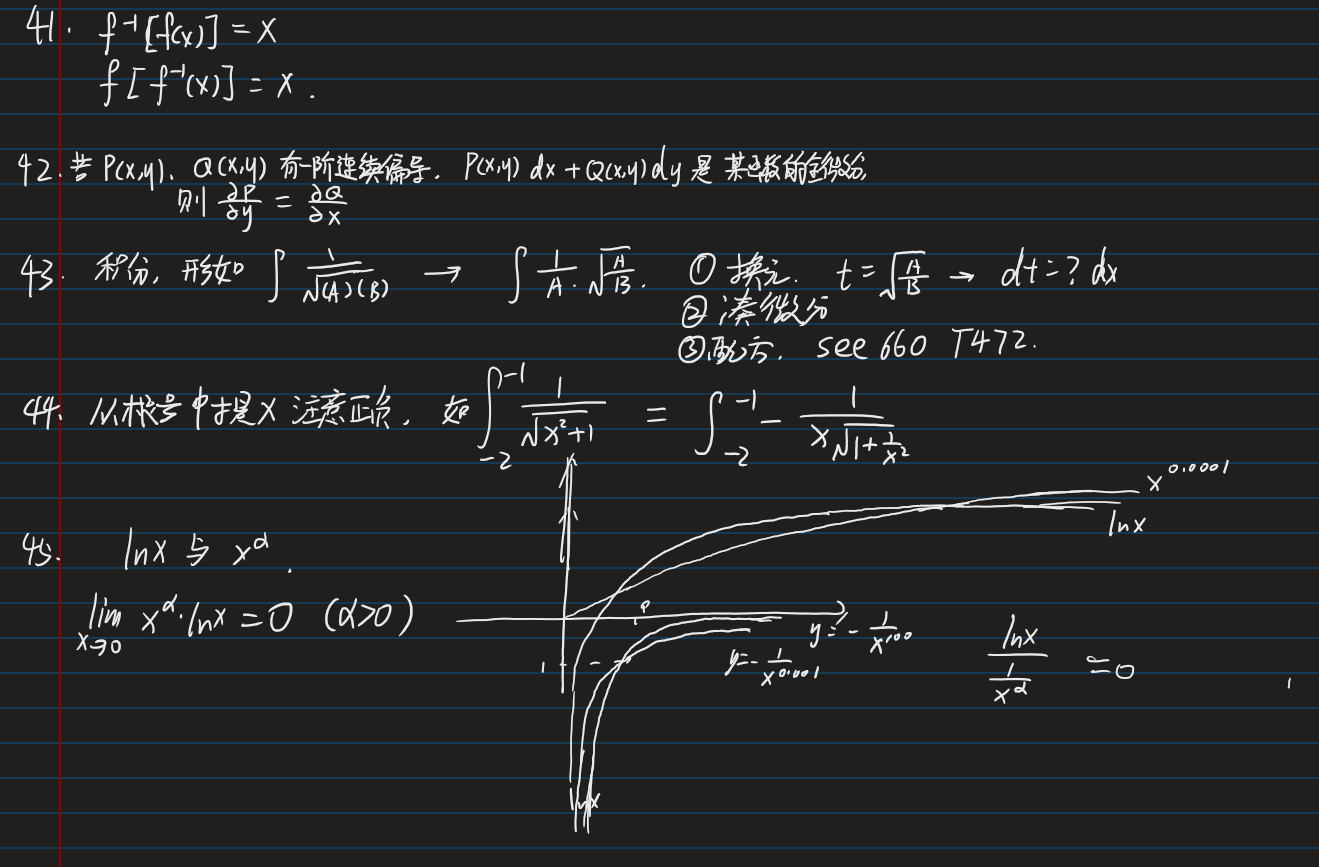 41. f⁻¹[f(x)] = x
f[f⁻¹(x)] = x.
42. 若 P(x,y)、Q(x,y) 有一阶连续偏导. P(x,y) dx + Q(x,y) dy 是某函数的全微分,
则 ∂P/∂y = ∂Q/∂x
43. 积分, 形如 ∫ 1/√((A)(B)) → ∫ 1/A · √(A/B). ① 换元. t = √(A/B) → dt = ? dx
② 凑微分
③ 配方. see 660 T472.
44. 从根号中提 x 注意正负, 如 ∫_{-2}^{-1} 1/√(x²+1) = ∫_{-2}^{-1} - 1/(x√(1+1/x²))
x^0.0001
lnx
45. lnx 与 x^α.
lim_{x→0} x^α · lnx = 0 (α>0)
y = - 1/x^100
y = - 1/x^0.001
lnx / (1/x^α) ≃ 0
1
lnx